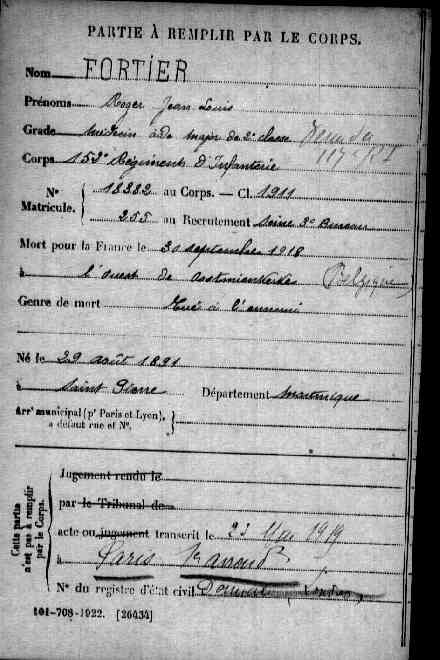 PARTIE À REMPLIR PAR LE CORPS.
Nom FORTIER
Prénoms Roger Jean Louis
Grade Médecin aide major de 2e classe
Corps 153e Régiment d'Infanterie
117e RI
No Matricule. { 18382 au Corps. — Cl. 1911
255 au Recrutement Seine 3e Bureau
Mort pour la France le 30 septembre 1918
à l'ouest de (Belgique)
Genre de mort Tué à l'ennemi
Né le 29 août 1891
à Saint Pierre Département Martinique
Arrt municipal (pr Paris et Lyon), à défaut rue et No. }
Cette partie n'est pas à remplir par le Corps.
Jugement rendu le
par le Tribunal de
acte ou jugement transcrit le 23 Mai 1919
à Paris
No du registre d'état civil
101-708-1922. [26434]